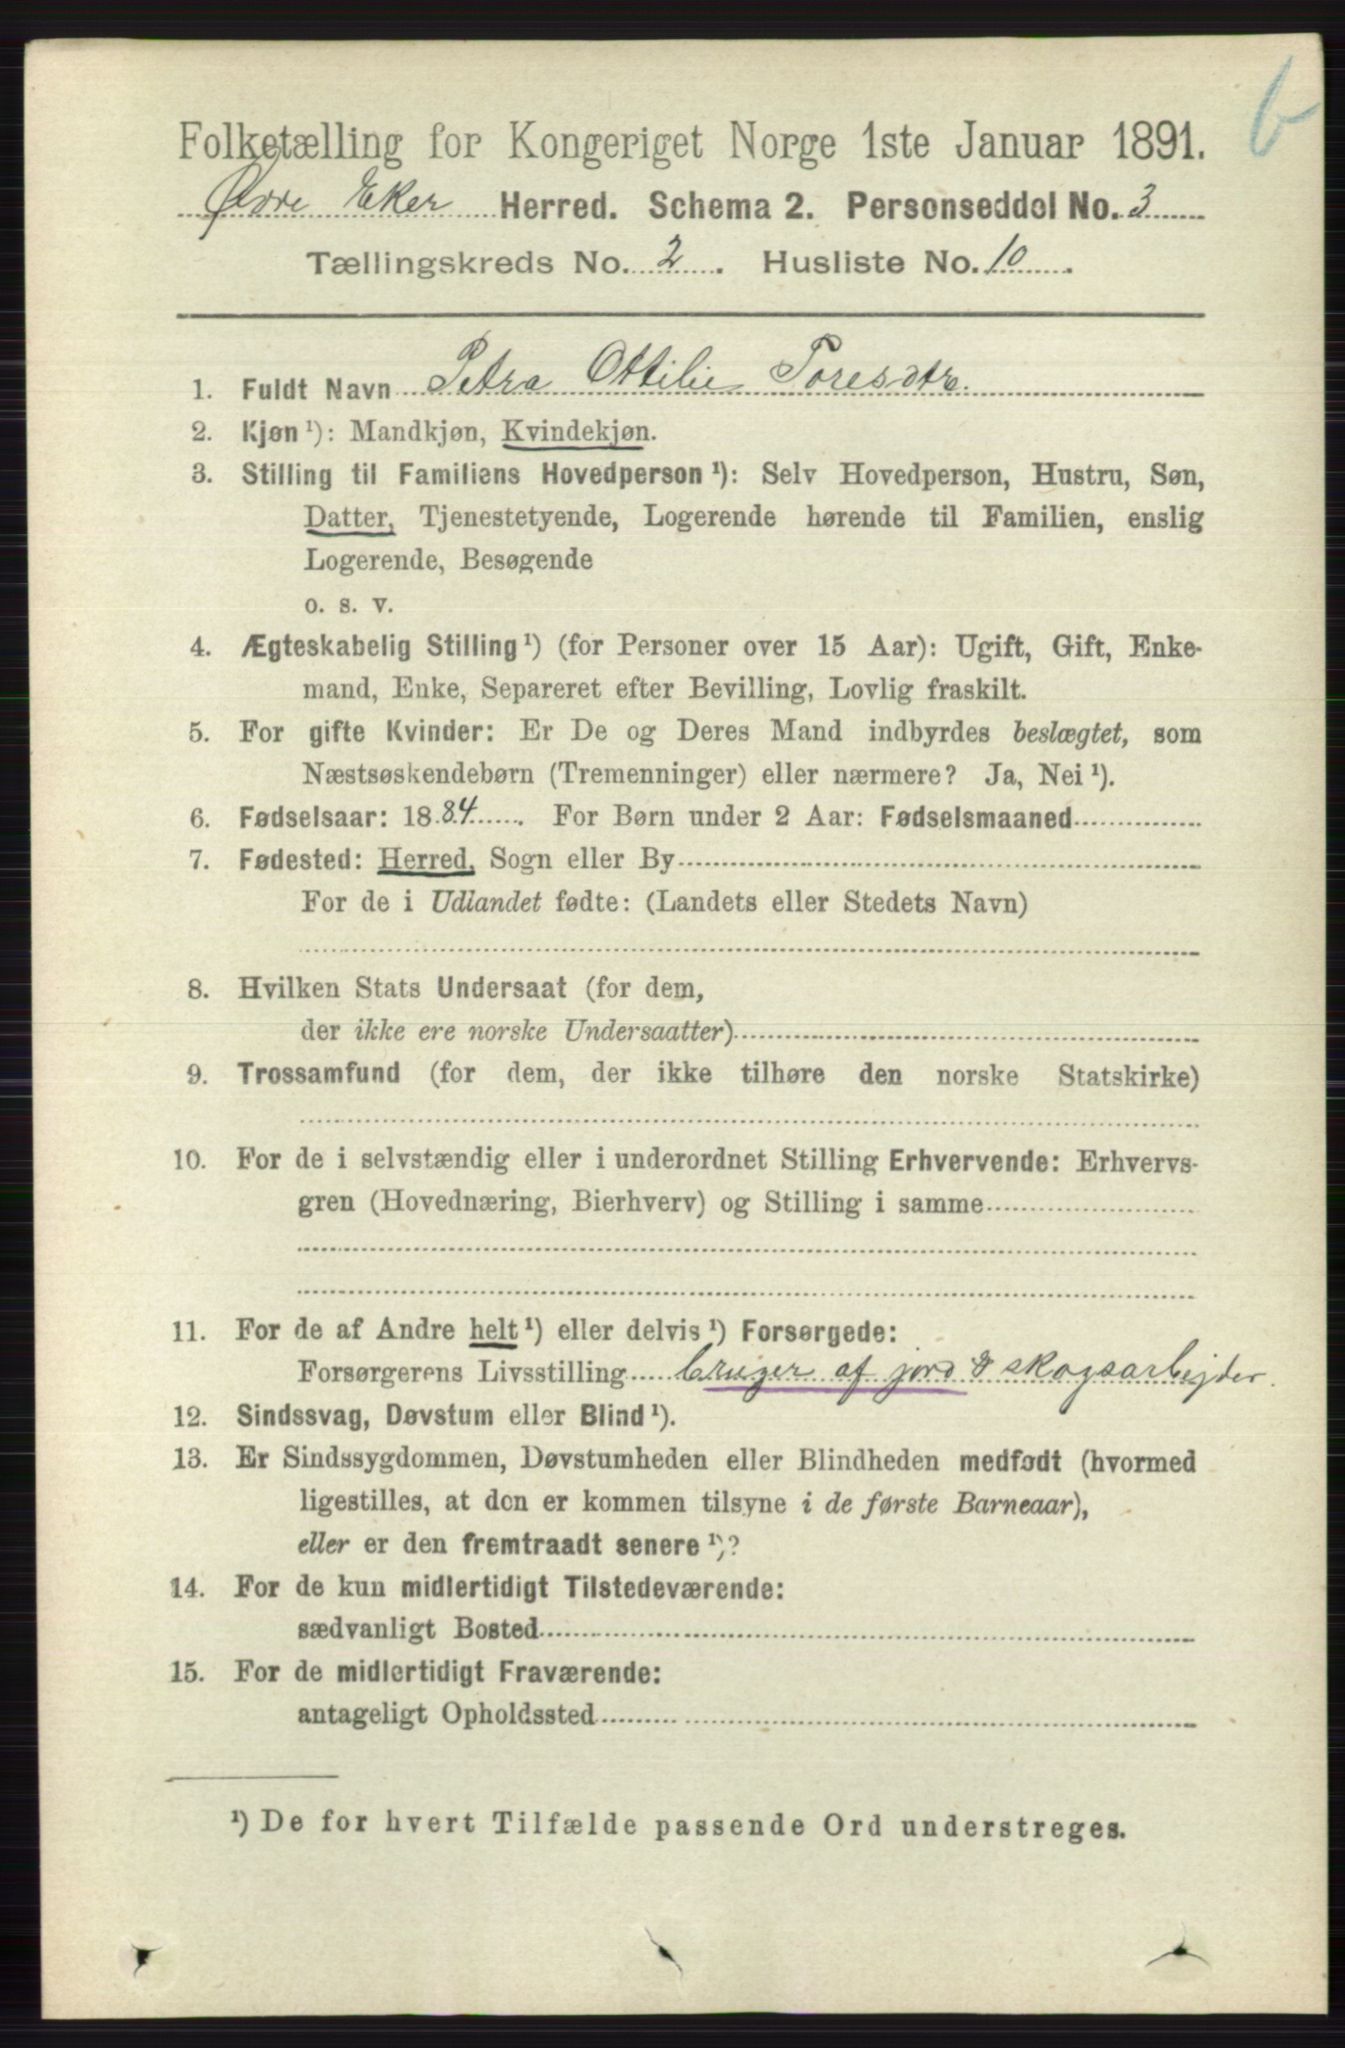 b
Folketælling for Kongeriget Norge 1ste Januar 1891.
Øvre Eker Herred. Schema 2. Personseddel No. 3
Tællingskreds No. 2. Husliste No. 10.
1. Fuldt Navn Petra Ottilie Toresdtr.
2. Kjøn ¹): Mandkjøn, Kvindekjøn.
3. Stilling til Familiens Hovedperson ¹): Selv Hovedperson, Hustru, Søn,
Datter, Tjenestetyende, Logerende hørende til Familien, enslig
Logerende, Besøgende
o. s. v.
4. Ægteskabelig Stilling ¹) (for Personer over 15 Aar): Ugift, Gift, Enke-
mand, Enke, Separeret efter Bevilling, Lovlig fraskilt.
5. For gifte Kvinder: Er De og Deres Mand indbyrdes beslægtet, som
Næstsøskendebørn (Tremenninger) eller nærmere? Ja, Nei ¹).
6. Fødselsaar: 1884. For Børn under 2 Aar: Fødselsmaaned
7. Fødested: Herred, Sogn eller By
For de i Udlandet fødte: (Landets eller Stedets Navn)
8. Hvilken Stats Undersaat (for dem,
der ikke ere norske Undersaatter)
9. Trossamfund (for dem, der ikke tilhøre den norske Statskirke)
10. For de i selvstændig eller i underordnet Stilling Erhvervende: Erhvervs-
gren (Hovednæring, Bierhverv) og Stilling i samme
11. For de af Andre helt ¹) eller delvis ¹) Forsørgede:
Forsørgerens Livsstilling bruger af jord & skogsarbejder.
12. Sindssvag, Døvstum eller Blind ¹).
13. Er Sindssygdommen, Døvstumheden eller Blindheden medfødt (hvormed
ligestilles, at den er kommen tilsyne i de første Barneaar),
eller er den fremtraadt senere ¹)?
14. For de kun midlertidigt Tilstedeværende:
sædvanligt Bosted
15. For de midlertidigt Fraværende:
antageligt Opholdssted
¹) De for hvert Tilfælde passende Ord understreges.